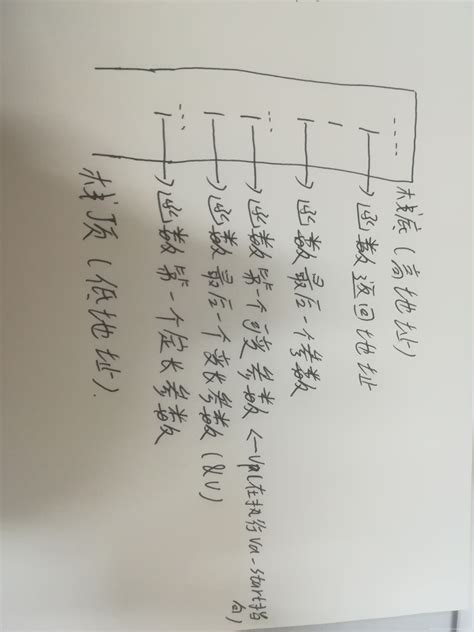 栈底（高地址）
函数返回地址
函数最后一个参数
函数第一个可变参数 ← vp(在执行va-start指向)
函数最后一个变长参数（&v）
函数第一个定长参数
栈顶（低地址）.